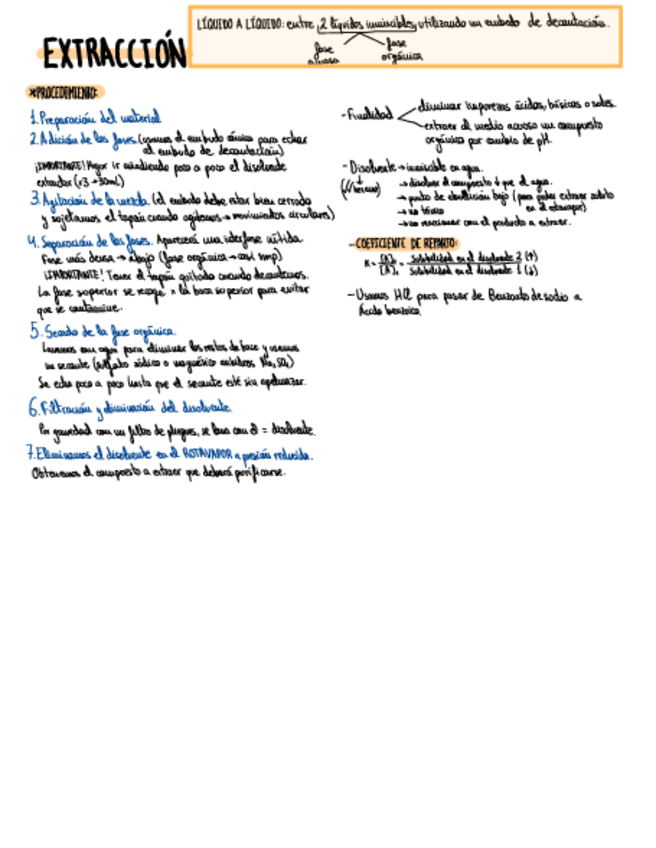 LÍQUIDO A LÍQUIDO: entre 2 líquidos inmiscibles, utilizando un embudo de decantación.
fase acuosa
fase orgánica
EXTRACCIÓN
*PROCEDIMIENTO:
1. Preparación del material
2. Adición de las fases (usamos el embudo cónico para echar
al embudo de decantación)
¡IMPORTANTE! Mejor ir añadiendo poco a poco el disolvente
extractor (x3 → 30ml)
3. Agitación de la mezcla. (el embudo debe estar bien cerrado
y sujetamos el tapón cuando agitamos → movimientos circulares)
4. Separación de las fases. Aparecerá una interfase nítida.
Fase más densa → abajo (fase orgánica → casi smp)
¡IMPORTANTE! Tener el tapón quitado cuando decantamos.
La fase superior se recoge x la boca superior para evitar
que se contamine.
5. Secado de la fase orgánica.
Lavamos con agua para eliminar los restos de base y usamos
un secante (sulfato sódico o magnésico anhidros Na2SO4)
Se echa poco a poco hasta que el secante esté sin apelmazar.
6. Filtración y eliminación del disolvente.
Por gravedad con un filtro de pliegues, se lava con el = disolvente.
7. Eliminamos el disolvente en el ROTAVAPOR a presión reducida.
Obtenemos el compuesto a extraer que deberá purificarse.
- Finalidad
eliminar impurezas ácidas, básicas o sales.
extraer del medio acuoso un compuesto
orgánico por cambio de pH.
- Disolvente → inmiscible en agua.
→ disolver el compuesto + que el agua.
→ punto de ebullición bajo (para poder extraer soluto
en el rotavapor)
→ no tóxico
→ no reaccionar con el producto a extraer.
- COEFICIENTE DE REPARTO:
K = [A]2 / [A]1 = Solubilidad en el disolvente 2 (↑) / Solubilidad en el disolvente 1 (↓)
- Usamos HCl para pasar de Benzoato de sodio a
Ácido benzoico.